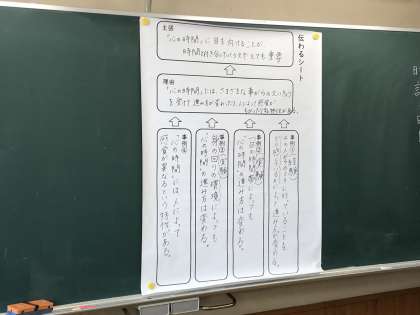 伝わるシート
主張
「心の時間」に目を向けることが
時間と付き合っていく上で、とても重要
理由
「心の時間」には、さまざまな事がらのえいきょうを
受けて進み方が変わったり、人によって感覚が
ちがったりする特性がある。
事例①
事例②(実験)
一日の時間帯によっても
「心の時間」の進み方は変わる。
事例③(実験)
身の回りの環境によっても
「心の時間」の進み方は変わる。
事例④
「心の時間」には人によって
感覚が異なるという特性がある。